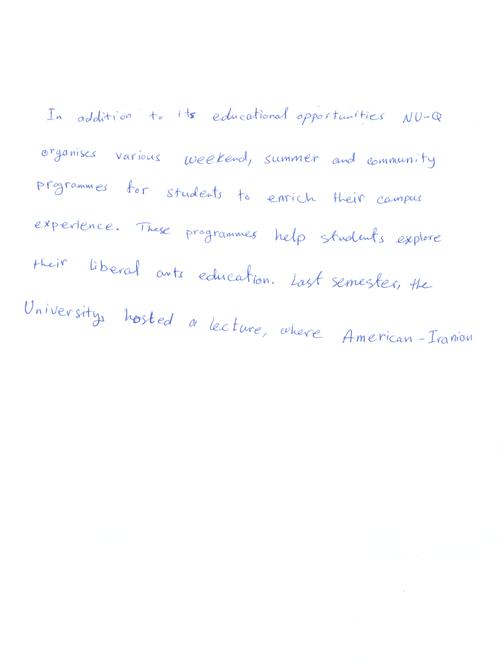 In addition to its educational opportunities NU-Q
organises various weekend, summer and community
programmes for students to enrich their campus
experience. These programmes help students explore
their liberal arts education. Last semester, the
University, hosted a lecture, where American-Iranian